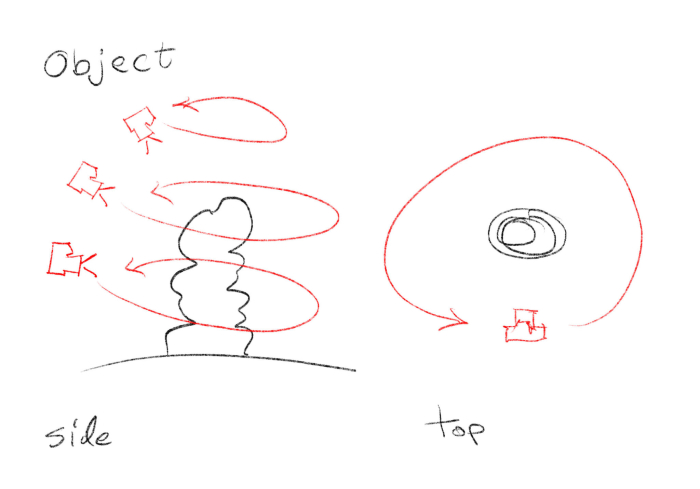 Object
side
top